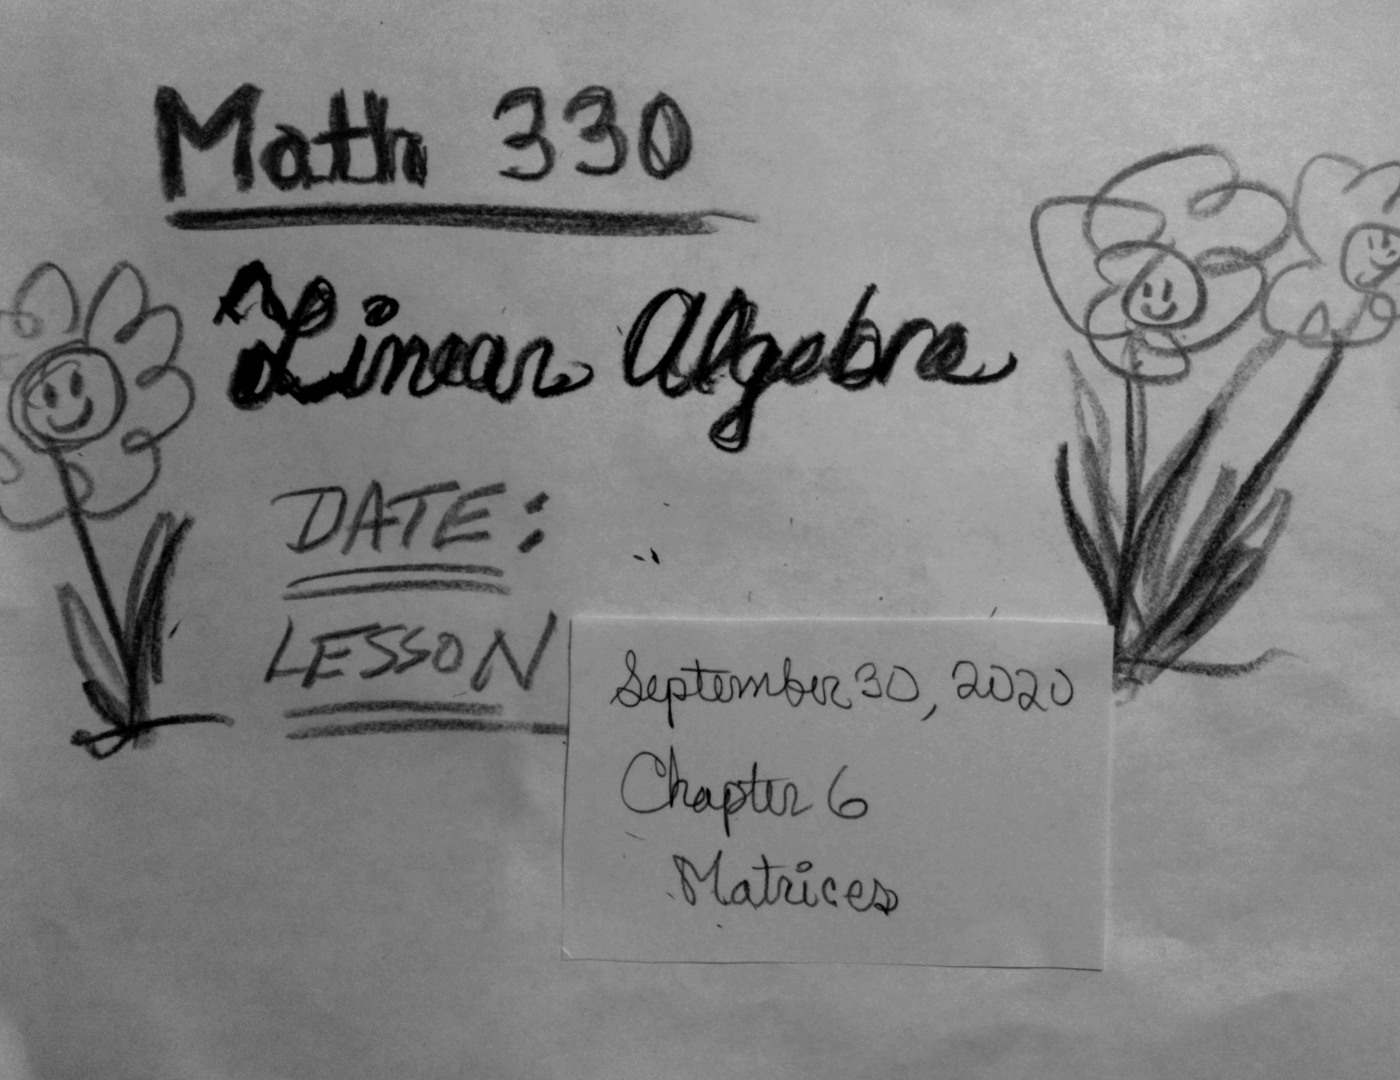 Math 330
Linear Algebra
DATE:
LESSON
September 30, 2020
Chapter 6
Matrices